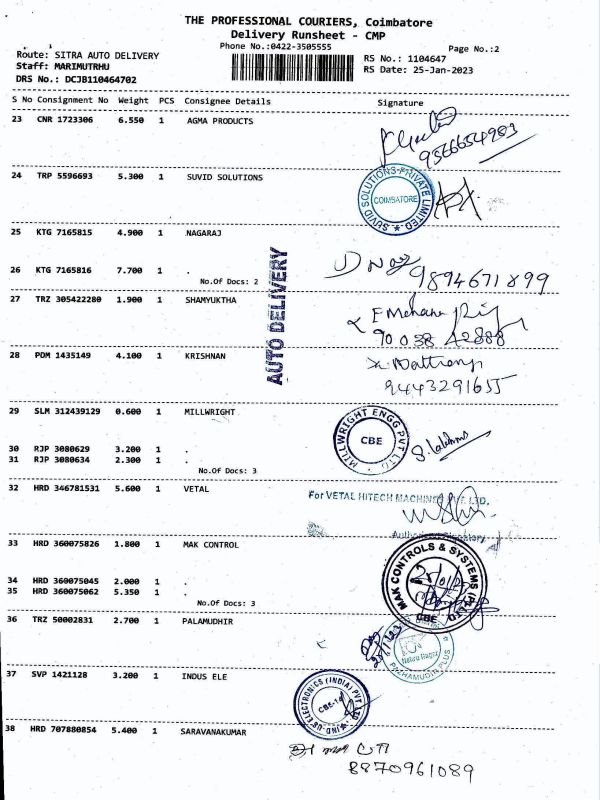 THE PROFESSIONAL COURIERS, Coimbatore
Delivery Runsheet - CMP
Phone No.:0422-3505555
Page No.:2
Route: SITRA AUTO DELIVERY
Staff: MARIMUTRHU
DRS No.: DCJB110464702
RS No.: 1104647
RS Date: 25-Jan-2023
S No Consignment No Weight PCS Consignee Details Signature
23 CNR 1723306 6.550 1 AGMA PRODUCTS
9566654903
24 TRP 5596693 5.300 1 SUVID SOLUTIONS
SUVID SOLUTIONS PRIVATE LIMITED
COIMBATORE
25 KTG 7165815 4.900 1 NAGARAJ
26 KTG 7165816 7.700 1 .
No.Of Docs: 2
9894671899
AUTO DELIVERY
27 TRZ 305422280 1.900 1 SHAMYUKTHA
90038 42888
28 PDM 1435149 4.100 1 KRISHNAN
9443291655
29 SLM 312439129 0.600 1 MILLWRIGHT
MILLWRIGHT ENGG PVT LTD
CBE
30 RJP 3080629 3.200 1 .
31 RJP 3080634 2.300 1 .
No.Of Docs: 3
32 HRD 346781531 5.600 1 VETAL
For VETAL HITECH MACHINES PVT LTD.
Authorised Signatory
33 HRD 360075826 1.800 1 MAK CONTROL
MAK CONTROLS & SYSTEMS (P) LTD
CBE
34 HRD 360075045 2.000 1 .
35 HRD 360075062 5.350 1 .
No.Of Docs: 3
36 TRZ 50002831 2.700 1 PALAMUDHIR
Nehru Nagar
PAZHAMUDIR PLUS
37 SVP 1421128 3.200 1 INDUS ELE
IND-US ELECTRONICS (INDIA) PVT LTD
CBE-14
38 HRD 707880854 5.400 1 SARAVANAKUMAR
8870961089